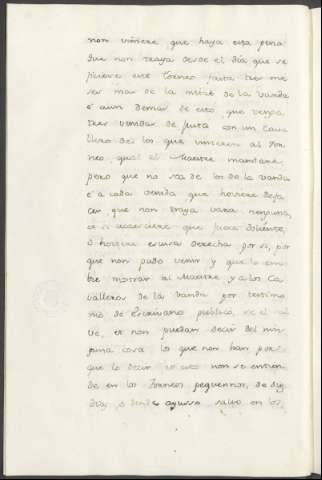 non viniere que haya esta pena
Que non traya desde el día que se
ficiere este torneo fasta tres me
ses mas de la mitad de la vanda
é aun demas de esto que venga
tres vandas de justa con un Cava
llero de los que vinieren al Tor
neo, qual el Maestre mandare,
pero que no sea de los de la vanda
é a cada venida que hoviere defa
cer que non traya vara ninguna,
é si acaesciere que fuere doliente,
ó hoviere escusa derecha por sí, por
que non pudo venir y que lo em
bie mostrar al Maestre, y a los Ca
valleros de la vanda por testimo
nio de Escrivano publico, sea sal
vo, et non puedan decir del nin
guna cosa lo que non han por
que lo decir
de en los Torneos pequennos, de diez
diez, o dende ayusso salvo en los